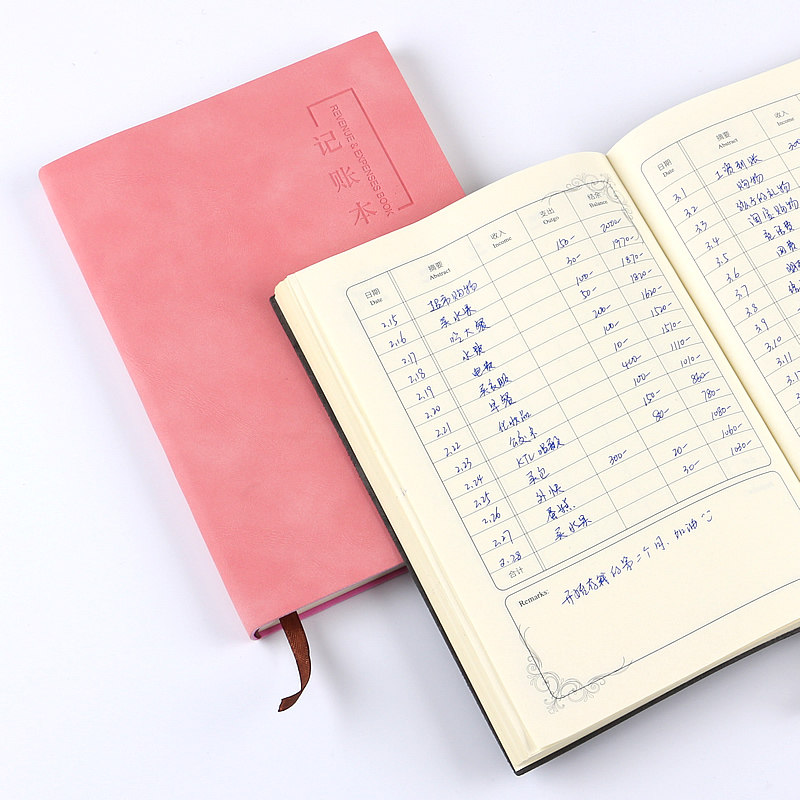 REVENUE & EXPENSES BOOK
记账本
日期 Date 摘要 Abstract 收入 Income 支出 Outgo 结余 Balance
2.15 超市购物 150- 2000-
2.16 买水果 30- 1970-
2.17 吃大餐 100- 1870-
2.18 水费 50- 1820-
2.19 电费 200- 1620-
2.20 买衣服 100- 1520-
2.21 早餐 10- 1510-
2.22 化妆品 400- 1110-
2.23 公交卡 100- 1010-
2.24 KTV唱歌 150- 860-
2.25 买包 80- 780-
2.26 外快 300- 1080-
2.27 蛋糕 20- 1060-
2.28 买水果 30- 1030-
合计
Remarks: 开始存钱的第二个月,加油
日期 Date 摘要 Abstract 收入 Income
3.1 工资到账
3.2 购物
3.3 的礼物
3.4 淘宝购物
3.5 电话费
3.6
3.7
3.8
3.9
3.10
3.11